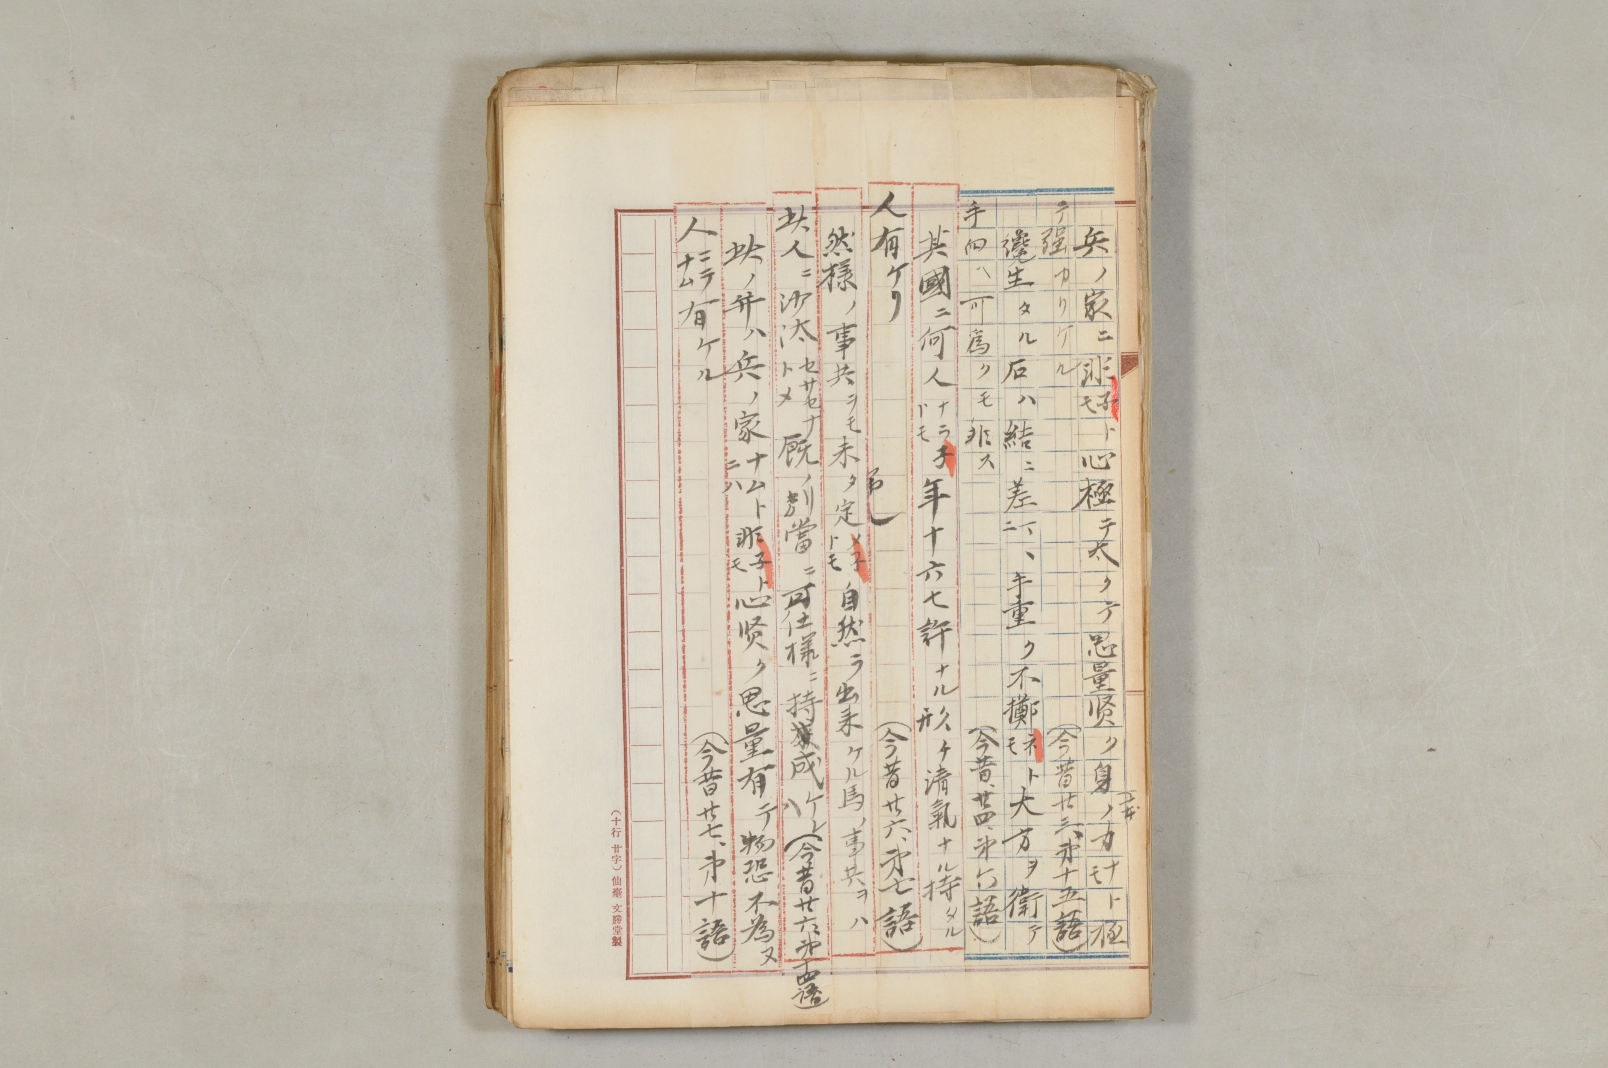 兵ノ家ニ非子ドモト心極テ太クテ思量賢ク身ノカナドモ極
テ強カリケル（今昔廿三、第十五語）
纔生タル石ハ結ニ差ニテ、手重ク不擲ネドモ大方ヲ衛テ
手向ハ可為クモ非ス（今昔、廿四、第六語）
其國ニ何人ナラ子ドモ年十六七許ナル形チ清氣ナル持タル
人有ケリ（今昔廿六、第七語）
然様ノ事共ヲモ未タ定メ子ドモ自然ラ出来ケル馬ノ事共ヲハ
此人ニ沙汰セサセナトメ厩ノ別當ニ可仕様ニ持成ケレハ（今昔廿六、第十四語）
此ノ弁ハ兵ノ家ナムドニハ非子ドモ心賢ク思量有テ物恐不為ヌ
人ニテナム有ケル（今昔廿七、第十語）
（十行廿字）仙臺 文勝堂製